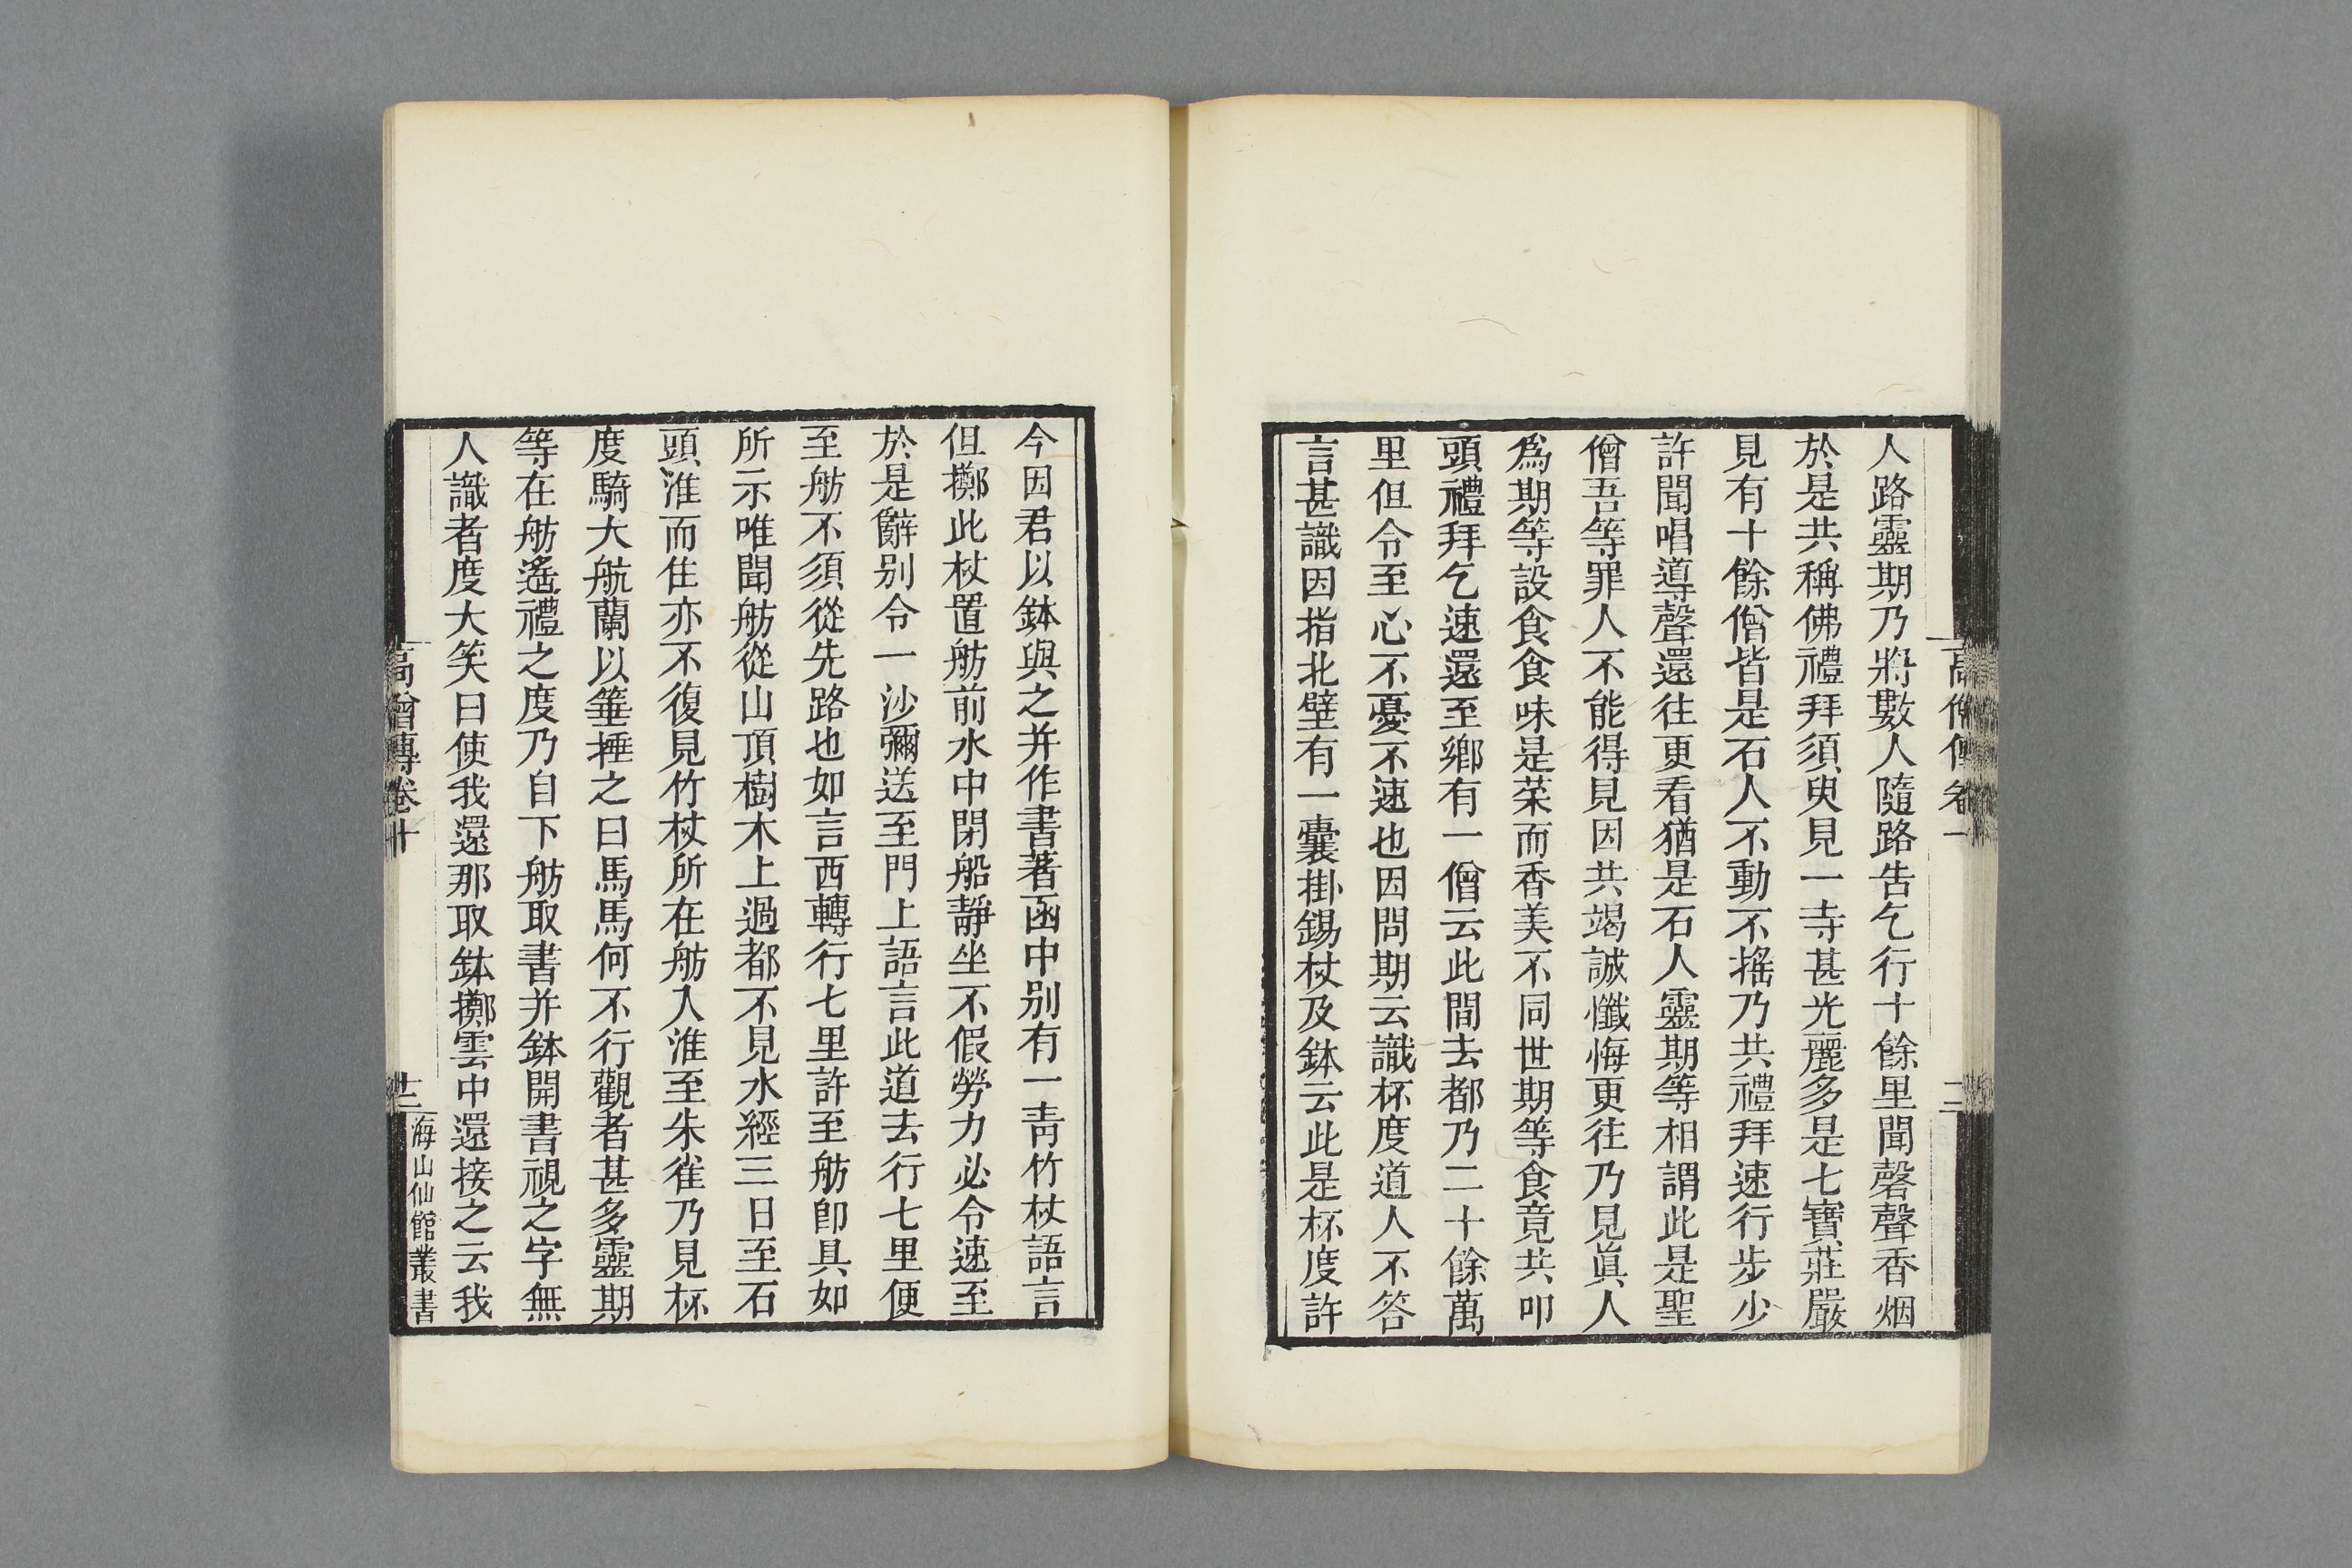 人路靈期乃將數人隨路告乞行十餘里聞磬聲香烟
於是共稱佛禮拜須臾見一寺甚光麗多是七寶莊嚴
見有十餘僧皆是石人不動不搖乃共禮拜速行步少
許聞唱導聲還往更看猶是石人靈期等相謂此是聖
僧吾等罪人不能得見因共竭誠懺悔更往乃見眞人
爲期等設食食味是菜而香美不同世期等食竟共叩
頭禮拜乞速還至鄉有一僧云此間去都乃二十餘萬
里但令至心不憂不速也因問期云識杯度道人不答
言甚識因指北壁有一囊掛錫杖及鉢云此是杯度許
今因君以鉢與之并作書著函中別有一靑竹杖語言
但擲此杖置舫前水中閉船靜坐不假勞力必令速至
於是辭別令一沙彌送至門上語言此道去行七里便
至舫不須從先路也如言西轉行七里許至舫卽具如
所示唯聞舫從山頂樹木上過都不見水經三日至石
頭淮而住亦不復見竹杖所在舫入淮至朱雀乃見杯
度騎大航蘭以箠捶之曰馬馬何不行觀者甚多靈期
等在舫遙禮之度乃自下舫取書并鉢開書視之字無
人識者度大笑曰使我還那取鉢擲雲中還接之云我
高僧傳卷十
海山仙館叢書